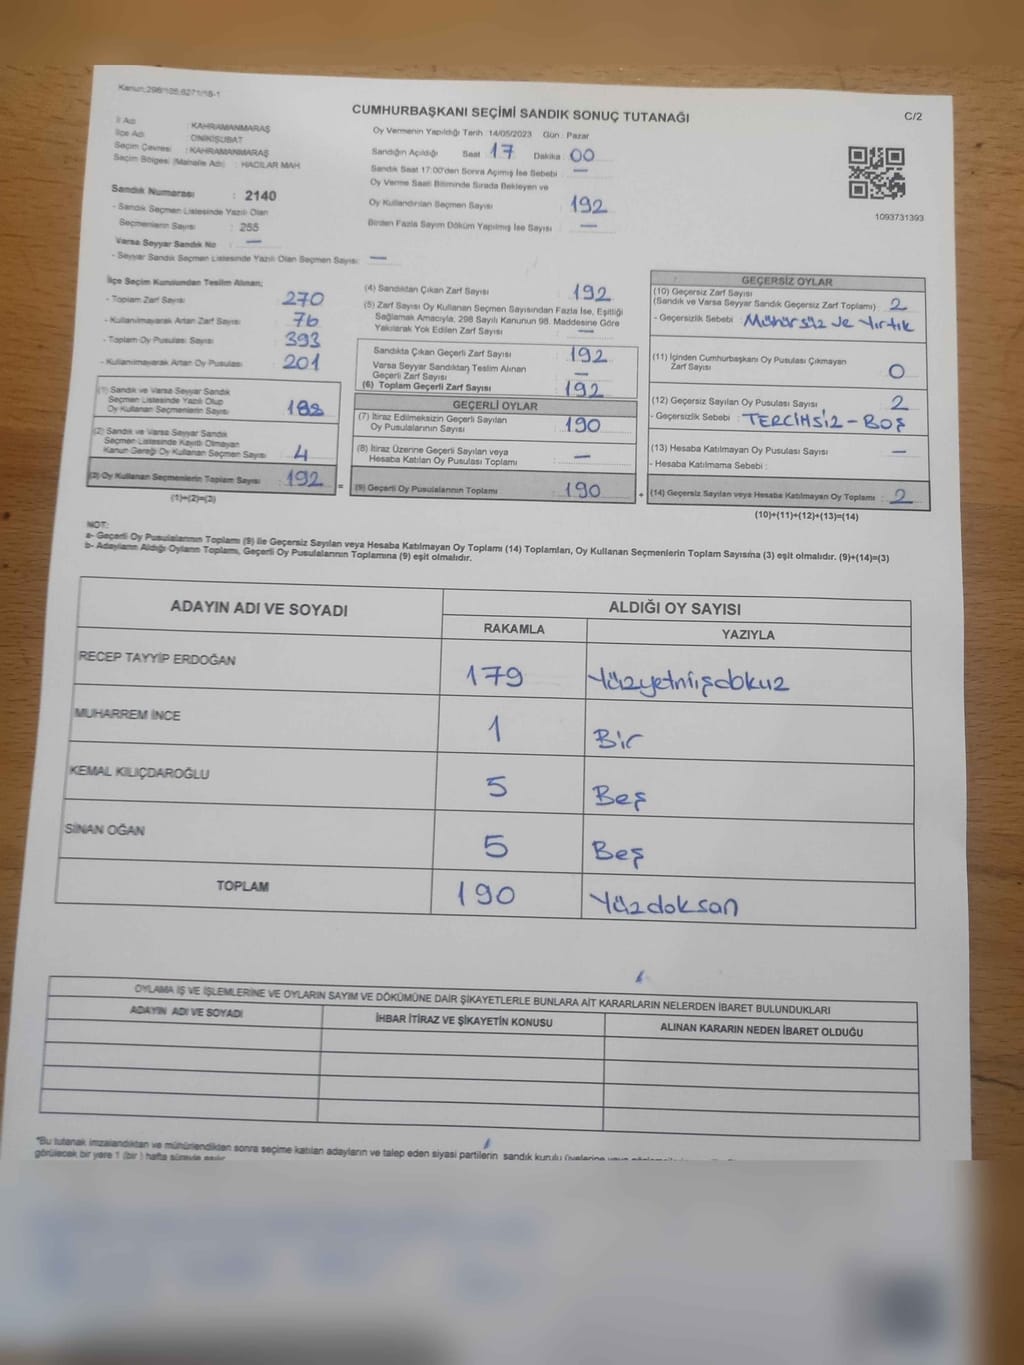 Kanun:298/105;6271/18-1
CUMHURBAŞKANI SEÇİMİ SANDIK SONUÇ TUTANAĞI
C/2
İl Adı : KAHRAMANMARAŞ
İlçe Adı : ONİKİŞUBAT
Seçim Çevresi : KAHRAMANMARAŞ
Seçim Bölgesi (Mahalle Adı) : HACILAR MAH
Sandık Numarası : 2140
- Sandık Seçmen Listesinde Yazılı Olan
Seçmenlerin Sayısı : 255
Varsa Seyyar Sandık No : —
- Seyyar Sandık Seçmen Listesinde Yazılı Olan Seçmen Sayısı: —
Oy Vermenin Yapıldığı Tarih :14/05/2023 Gün : Pazar
Sandığın Açıldığı Saat : 17 Dakika : 00
Sandık Saat 17:00'den Sonra Açılmış İse Sebebi : —
Oy Verme Saati Bitiminde Sırada Bekleyen ve
Oy Kullandırılan Seçmen Sayısı : 192
Birden Fazla Sayım Döküm Yapılmış İse Sayısı : —
1093731393
İlçe Seçim Kurulundan Teslim Alınan;
- Toplam Zarf Sayısı : 270
- Kullanılmayarak Artan Zarf Sayısı : 76
- Toplam Oy Pusulası Sayısı : 393
- Kullanılmayarak Artan Oy Pusulası : 201
(1) Sandık ve Varsa Seyyar Sandık
Seçmen Listesinde Yazılı Olup
Oy Kullanan Seçmenlerin Sayısı : 188
(2) Sandık ve Varsa Seyyar Sandık
Seçmen Listesinde Kayıtlı Olmayan
Kanun Gereği Oy Kullanan Seçmen Sayısı : 4
(3) Oy Kullanan Seçmenlerin Toplam Sayısı : 192
(1)+(2)=(3)
(4) Sandıktan Çıkan Zarf Sayısı : 192
(5) Zarf Sayısı Oy Kullanan Seçmen Sayısından Fazla İse, Eşitliği
Sağlamak Amacıyla, 298 Sayılı Kanunun 98. Maddesine Göre
Yakılarak Yok Edilen Zarf Sayısı : —
Sandıkta Çıkan Geçerli Zarf Sayısı : 192
Varsa Seyyar Sandıktan Teslim Alınan
Geçerli Zarf Sayısı : —
(6) Toplam Geçerli Zarf Sayısı : 192
GEÇERLİ OYLAR
(7) İtiraz Edilmeksizin Geçerli Sayılan
Oy Pusulalarının Sayısı : 190
(8) İtiraz Üzerine Geçerli Sayılan veya
Hesaba Katılan Oy Pusulası Toplamı : —
= (9) Geçerli Oy Pusulalarının Toplamı : 190
GEÇERSİZ OYLAR
(10) Geçersiz Zarf Sayısı
(Sandık ve Varsa Seyyar Sandık Geçersiz Zarf Toplamı) : 2
- Geçersizlik Sebebi : Mühürsüz ve Yırtık
(11) İçinden Cumhurbaşkanı Oy Pusulası Çıkmayan
Zarf Sayısı : 0
(12) Geçersiz Sayılan Oy Pusulası Sayısı : 2
- Geçersizlik Sebebi : TERCİHSİZ - BOŞ
(13) Hesaba Katılmayan Oy Pusulası Sayısı : —
- Hesaba Katılmama Sebebi :
+ (14) Geçersiz Sayılan veya Hesaba Katılmayan Oy Toplamı : 2
(10)+(11)+(12)+(13)=(14)
NOT:
a- Geçerli Oy Pusulalarının Toplamı (9) ile Geçersiz Sayılan veya Hesaba Katılmayan Oy Toplamı (14) Toplamları, Oy Kullanan Seçmenlerin Toplam Sayısına (3) eşit olmalıdır. (9)+(14)=(3)
b- Adayların Aldığı Oyların Toplamı, Geçerli Oy Pusulalarının Toplamına (9) eşit olmalıdır.
ADAYIN ADI VE SOYADI ALDIĞI OY SAYISI
RAKAMLA YAZIYLA
RECEP TAYYİP ERDOĞAN 179 Yüzyetmişdokuz
MUHARREM İNCE 1 Bir
KEMAL KILIÇDAROĞLU 5 Beş
SİNAN OĞAN 5 Beş
TOPLAM 190 Yüzdoksan
OYLAMA İŞ VE İŞLEMLERİNE VE OYLARIN SAYIM VE DÖKÜMÜNE DAİR ŞİKAYETLERLE BUNLARA AİT KARARLARIN NELERDEN İBARET BULUNDUKLARI
ADAYIN ADI VE SOYADI İHBAR İTİRAZ VE ŞİKAYETİN KONUSU ALINAN KARARIN NEDEN İBARET OLDUĞU
*Bu tutanak imzalandıktan ve mühürlendikten sonra seçime katılan adayların ve talep eden siyasi partilerin sandık kurulu üyelerine veya
görülecek bir yere 1 (bir ) hafta süreyle asılır